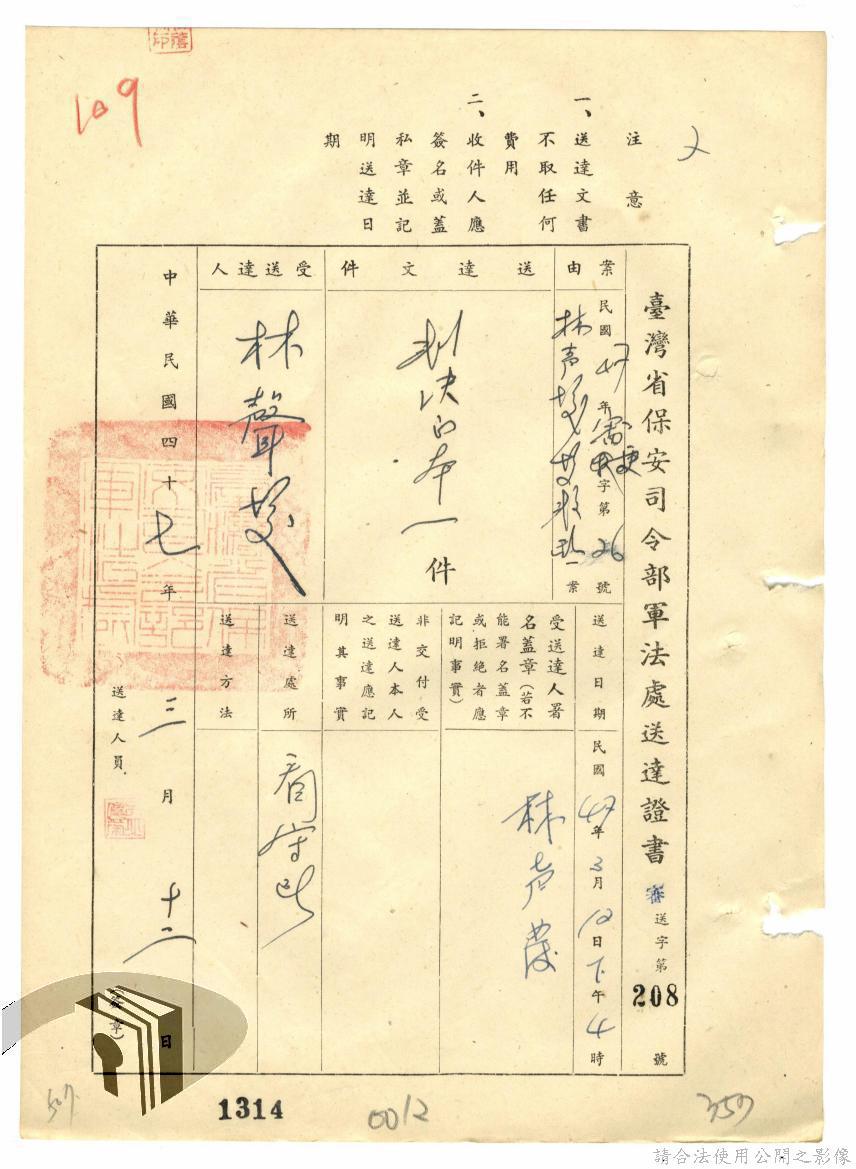 109
注意
一、送達文書
不取任何
費用
二、收件人應
簽名或蓋
私章並記
明送達日
期
臺灣省保安司令部軍法處送達證書 審送字第208號
案由
民國47年審更字第26號
林声發 一案
送達日期
民國47年3月12日下午4時
送達文件
判決正本一件
受送達人署
名蓋章(若不
能署名蓋章
或拒絕者應
記明事實)
林声發
非交付受
送達人本人
之送達應記
明其事實
受送達人
林聲發
送達處所
看守所
送達方法
中華民國四十七年三月十二日
送達人員
(簽章)
1314
0012
359
507
請合法使用公開之影像